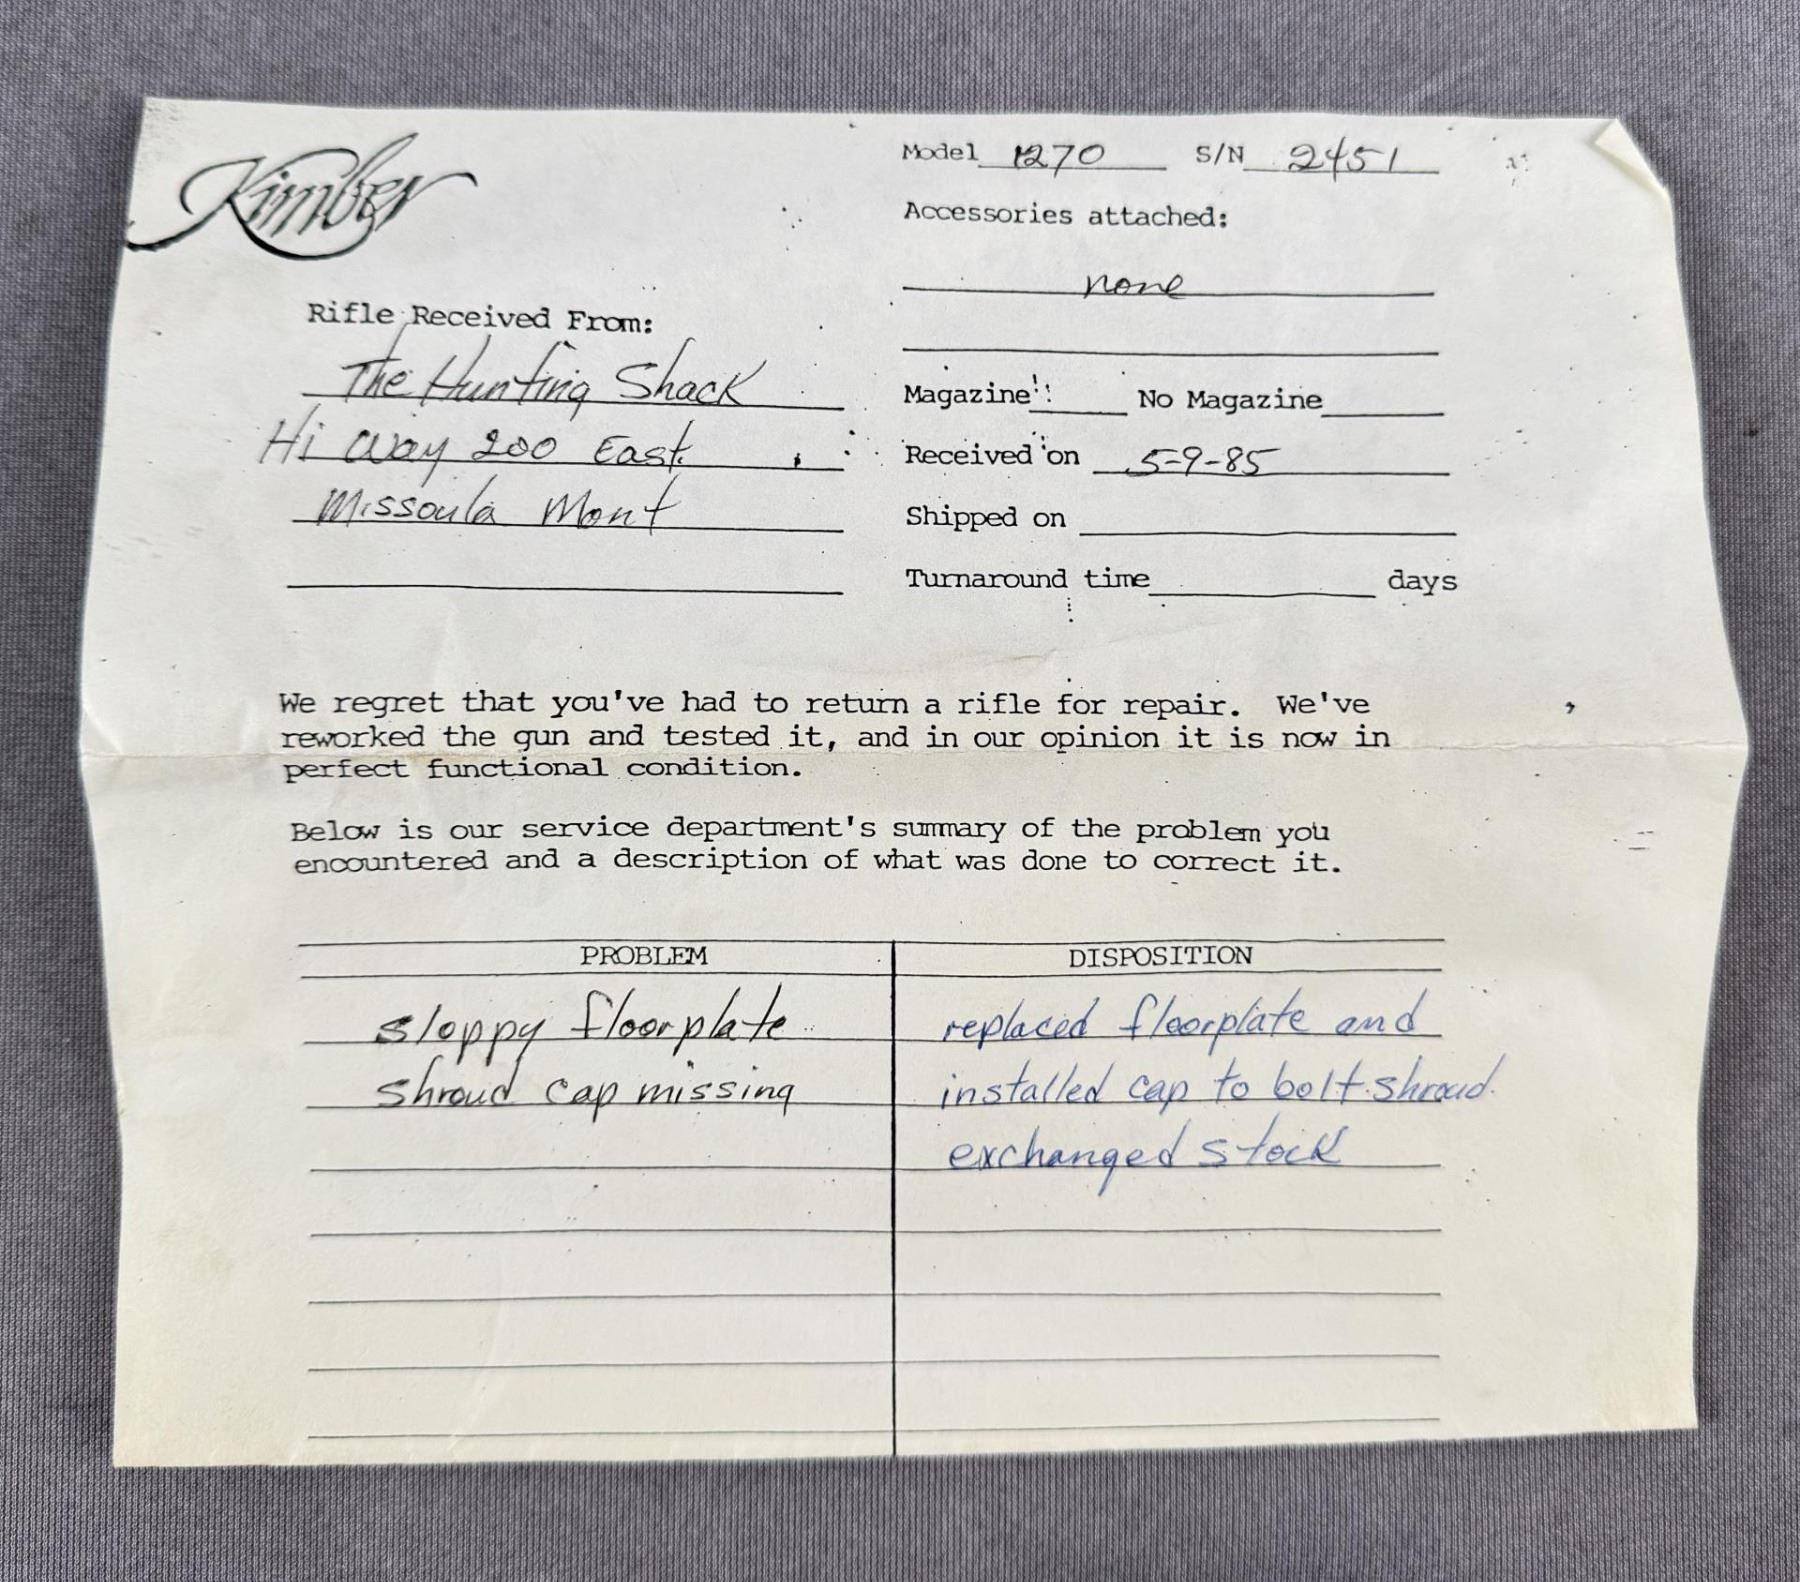 Kimber
Model 1270 S/N 2451
Accessories attached:
none
Rifle Received From:
The Hunting Shack
Hi Way 200 East
Missoula Mont
Magazine No Magazine
Received on 5-9-85
Shipped on
Turnaround time days
We regret that you've had to return a rifle for repair. We've
reworked the gun and tested it, and in our opinion it is now in
perfect functional condition.
Below is our service department's summary of the problem you
encountered and a description of what was done to correct it.
PROBLEM DISPOSITION
sloppy floorplate replaced floorplate and
shroud cap missing installed cap to bolt shroud.
exchanged stock